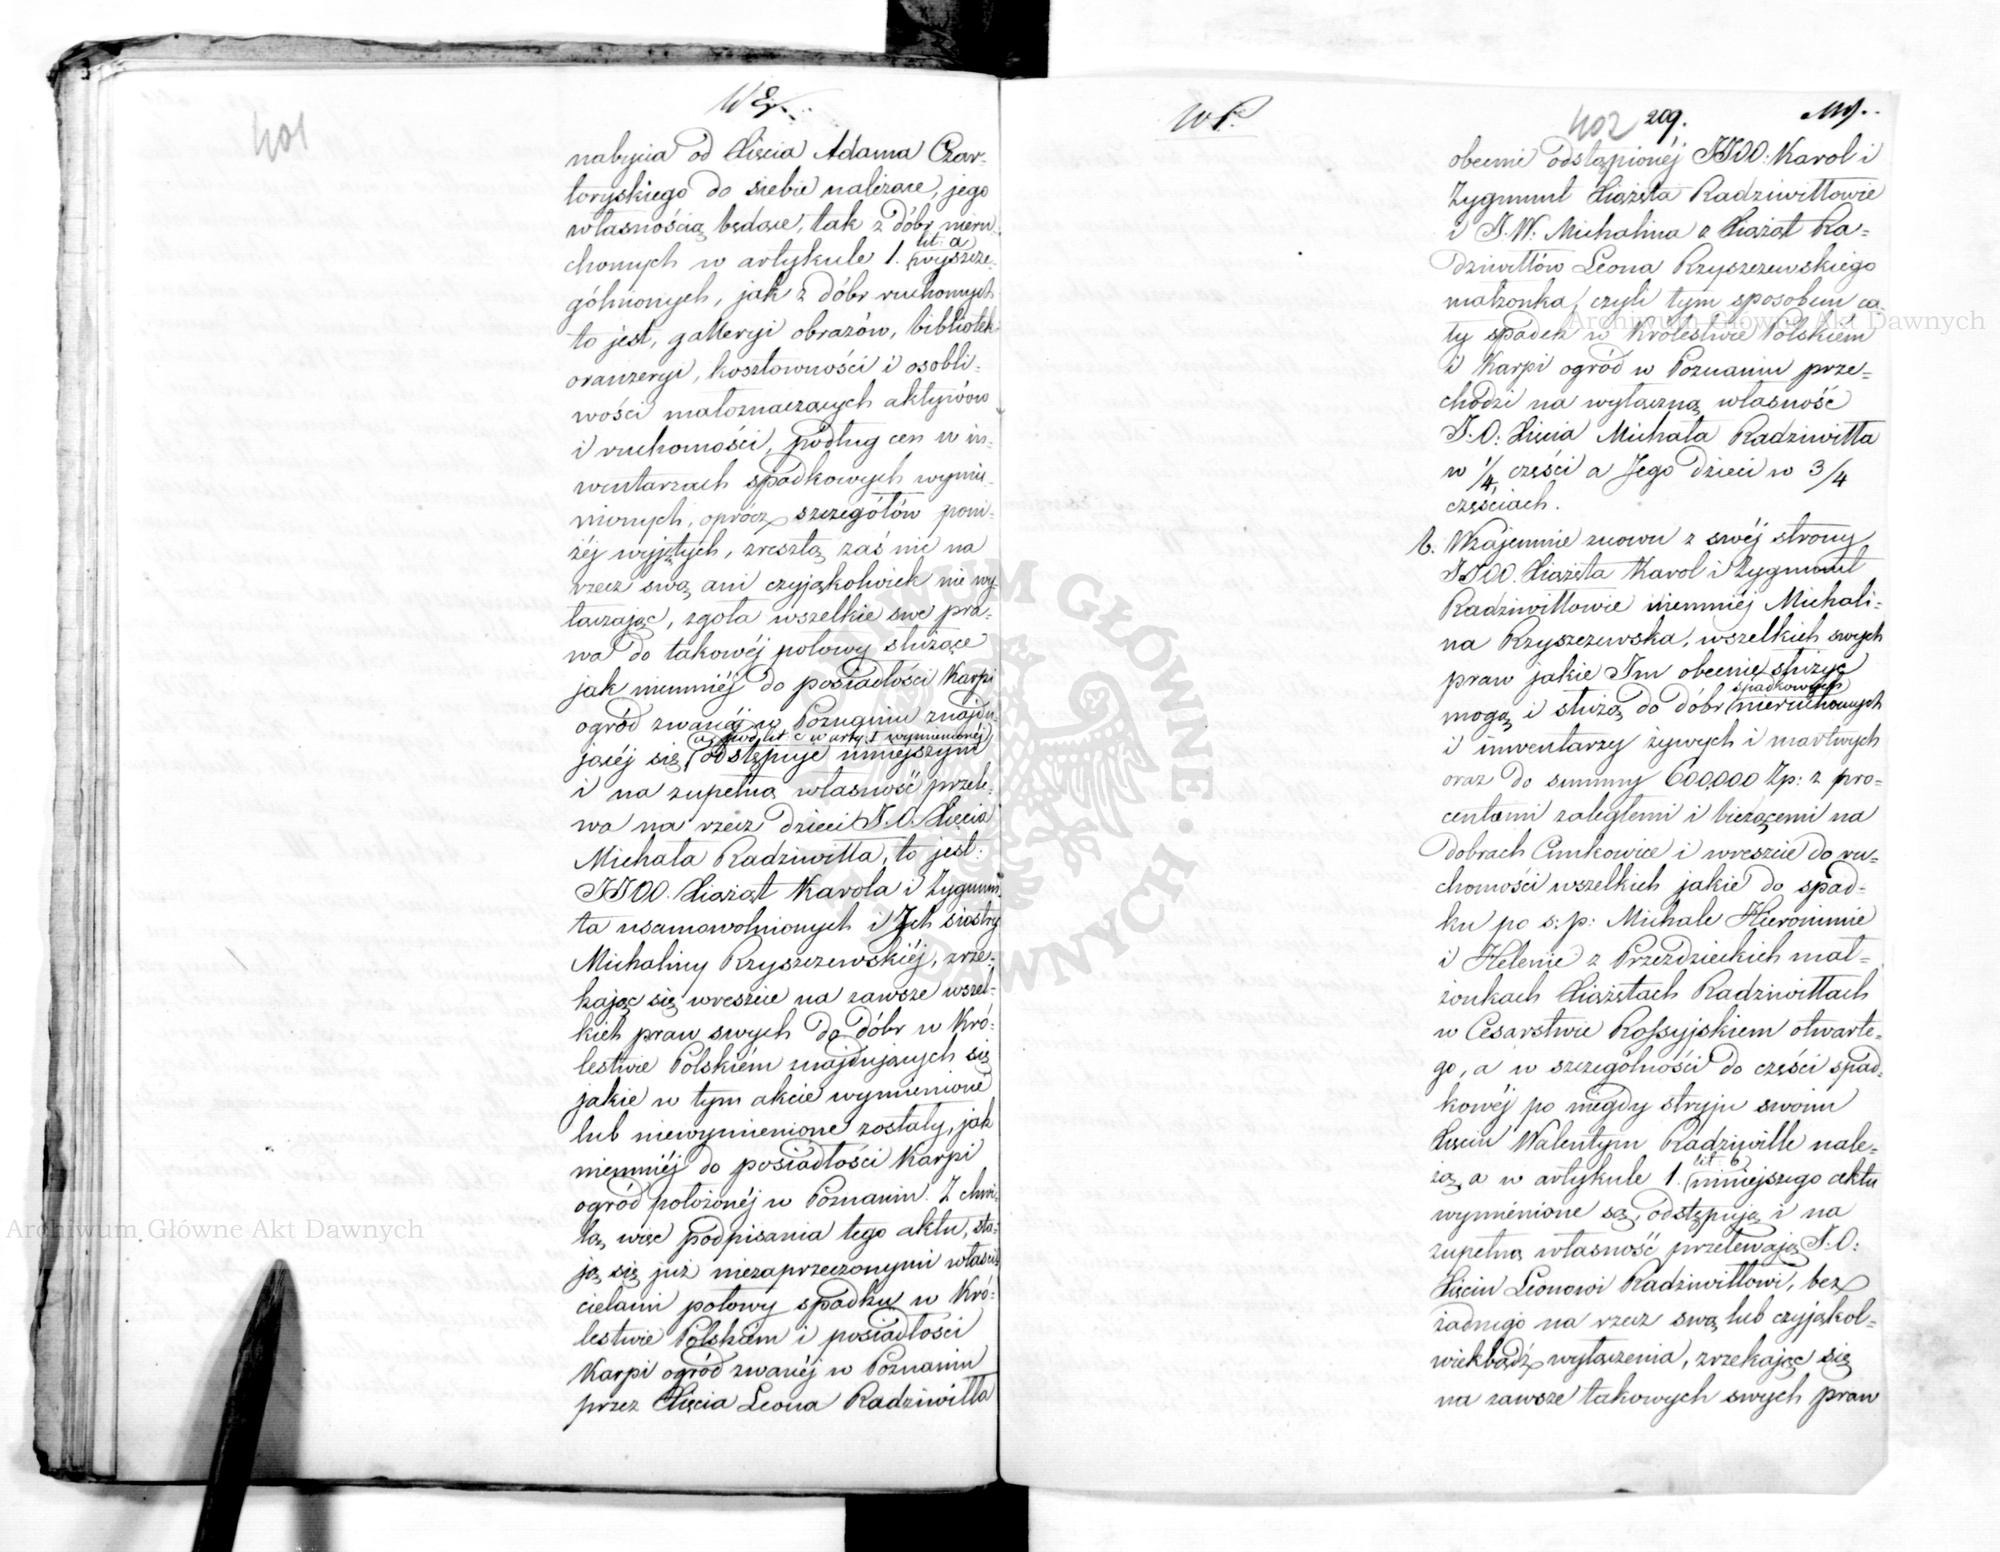 401
nabycia od Xięcia Adama Czar-
toryskiego do siebie należące, jego
własnością będące, tak z dóbr nieru-
chomych w artykule 1. lit. a wyszcze-
gólnionych, jak z dóbr ruchomych
to jest, galleryi obrazów, bibliotek
oranżeryi, kosztowności i osobli-
wości małoznaczących aktywów
i ruchomości, podług cen w in-
wentarzach spadkowych wymie-
nionych, oprócz szczegółów poni-
żéj wyjętych, zresztą zaś nic na
rzecz swą ani czyjąkolwiek nie wy-
łaczając, zgoła wszelkie swe pra-
wa do takowéj połowy służące
jak niemniéj do posiadłości Karpi
ogród zwanéj w Poznaniu znajdu-
jącéj się, a pod lit. c w art. 1 wymienionéj
odstępuje niniejszym
i na zupełną własność przele-
wa na rzecz dzieci J.O. Xięcia
Michała Radziwiłła, to jest:
JJOO. Xiążąt Karola i Zygmun-
ta usamowolnionych i Ich siostry
Michaliny Rzyszczewskiéj, zrze-
kając się wreszcie na zawsze wszel-
kich praw swych do dóbr w Kró-
lestwie Polskiém znajdujących się
jakie w tym akcie wymienione
lub niewymienione zostały, jak
niemniéj do posiadłości Karpi
ogród położonéj w Poznaniu. Z chwi-
lą więc podpisania tego aktu, sta-
ją się już niezaprzeczonymi właści-
cielami połowy spadku w Kró-
lestwie Polskiém i posiadłości
Karpi ogród zwanéj w Poznaniu
przez Xięcia Leona Radziwiłła
402 209.
obecnie odstąpionéj JJOO: Karol i
Zygmunt Xiążęta Radziwiłłowie
i J.W. Michalina z Xiążąt Ra-
dziwiłłów Leona Rzyszczewskiego
małżonka, czyli tym sposobem ca-
ły spadek w Królestwie Polskiém
i Karpi ogród w Poznaniu prze-
chodzi na wyłączną własność
J.O: Xięcia Michała Radziwiłła
w 1/4 części a Jego dzieci w 3/4
częściach.
b. Wzajemnie znowu z swéj strony
JJOO. Xiążęta Karol i Zygmunt
Radziwiłłowie niemniéj Michali-
na Rzyszczewska, wszelkich swych
praw jakie Im obecnie służyć
mogą i służą do dóbr spadkowych nieruchomych
i inwentarzy żywych i martwych
oraz do summy 600,000 Zp: z pro-
centami zaległemi i bieżącemi na
dobrach Cimkowice i wreszcie do ru-
chomości wszelkich jakie do spad-
ku po s: p: Michale Hieronimie
i Helenie z Przezdzieckich mał-
żonkach Xiążętach Radziwiłłach
w Cesarstwie Rossyjskiem otwarte-
go, a w szczególności do części spad-
kowéj po niegdy stryju swoim
Xięciu Walentym Radziwille nale-
żą, a w artykule 1. lit. b niniejszego aktu
wymienione są, odstępują i na
zupełną własność przelewają J.O:
Xięciu Leonowi Radziwiłłowi, bez
żadnego na rzecz swą lub czyjąkol-
wiekbądź wyłączenia, zrzekając się
na zawsze takowych swych praw
Archiwum Główne Akt Dawnych
Archiwum Główne Akt Dawnych
ARCHIWUM GŁÓWNE AKT DAWNYCH